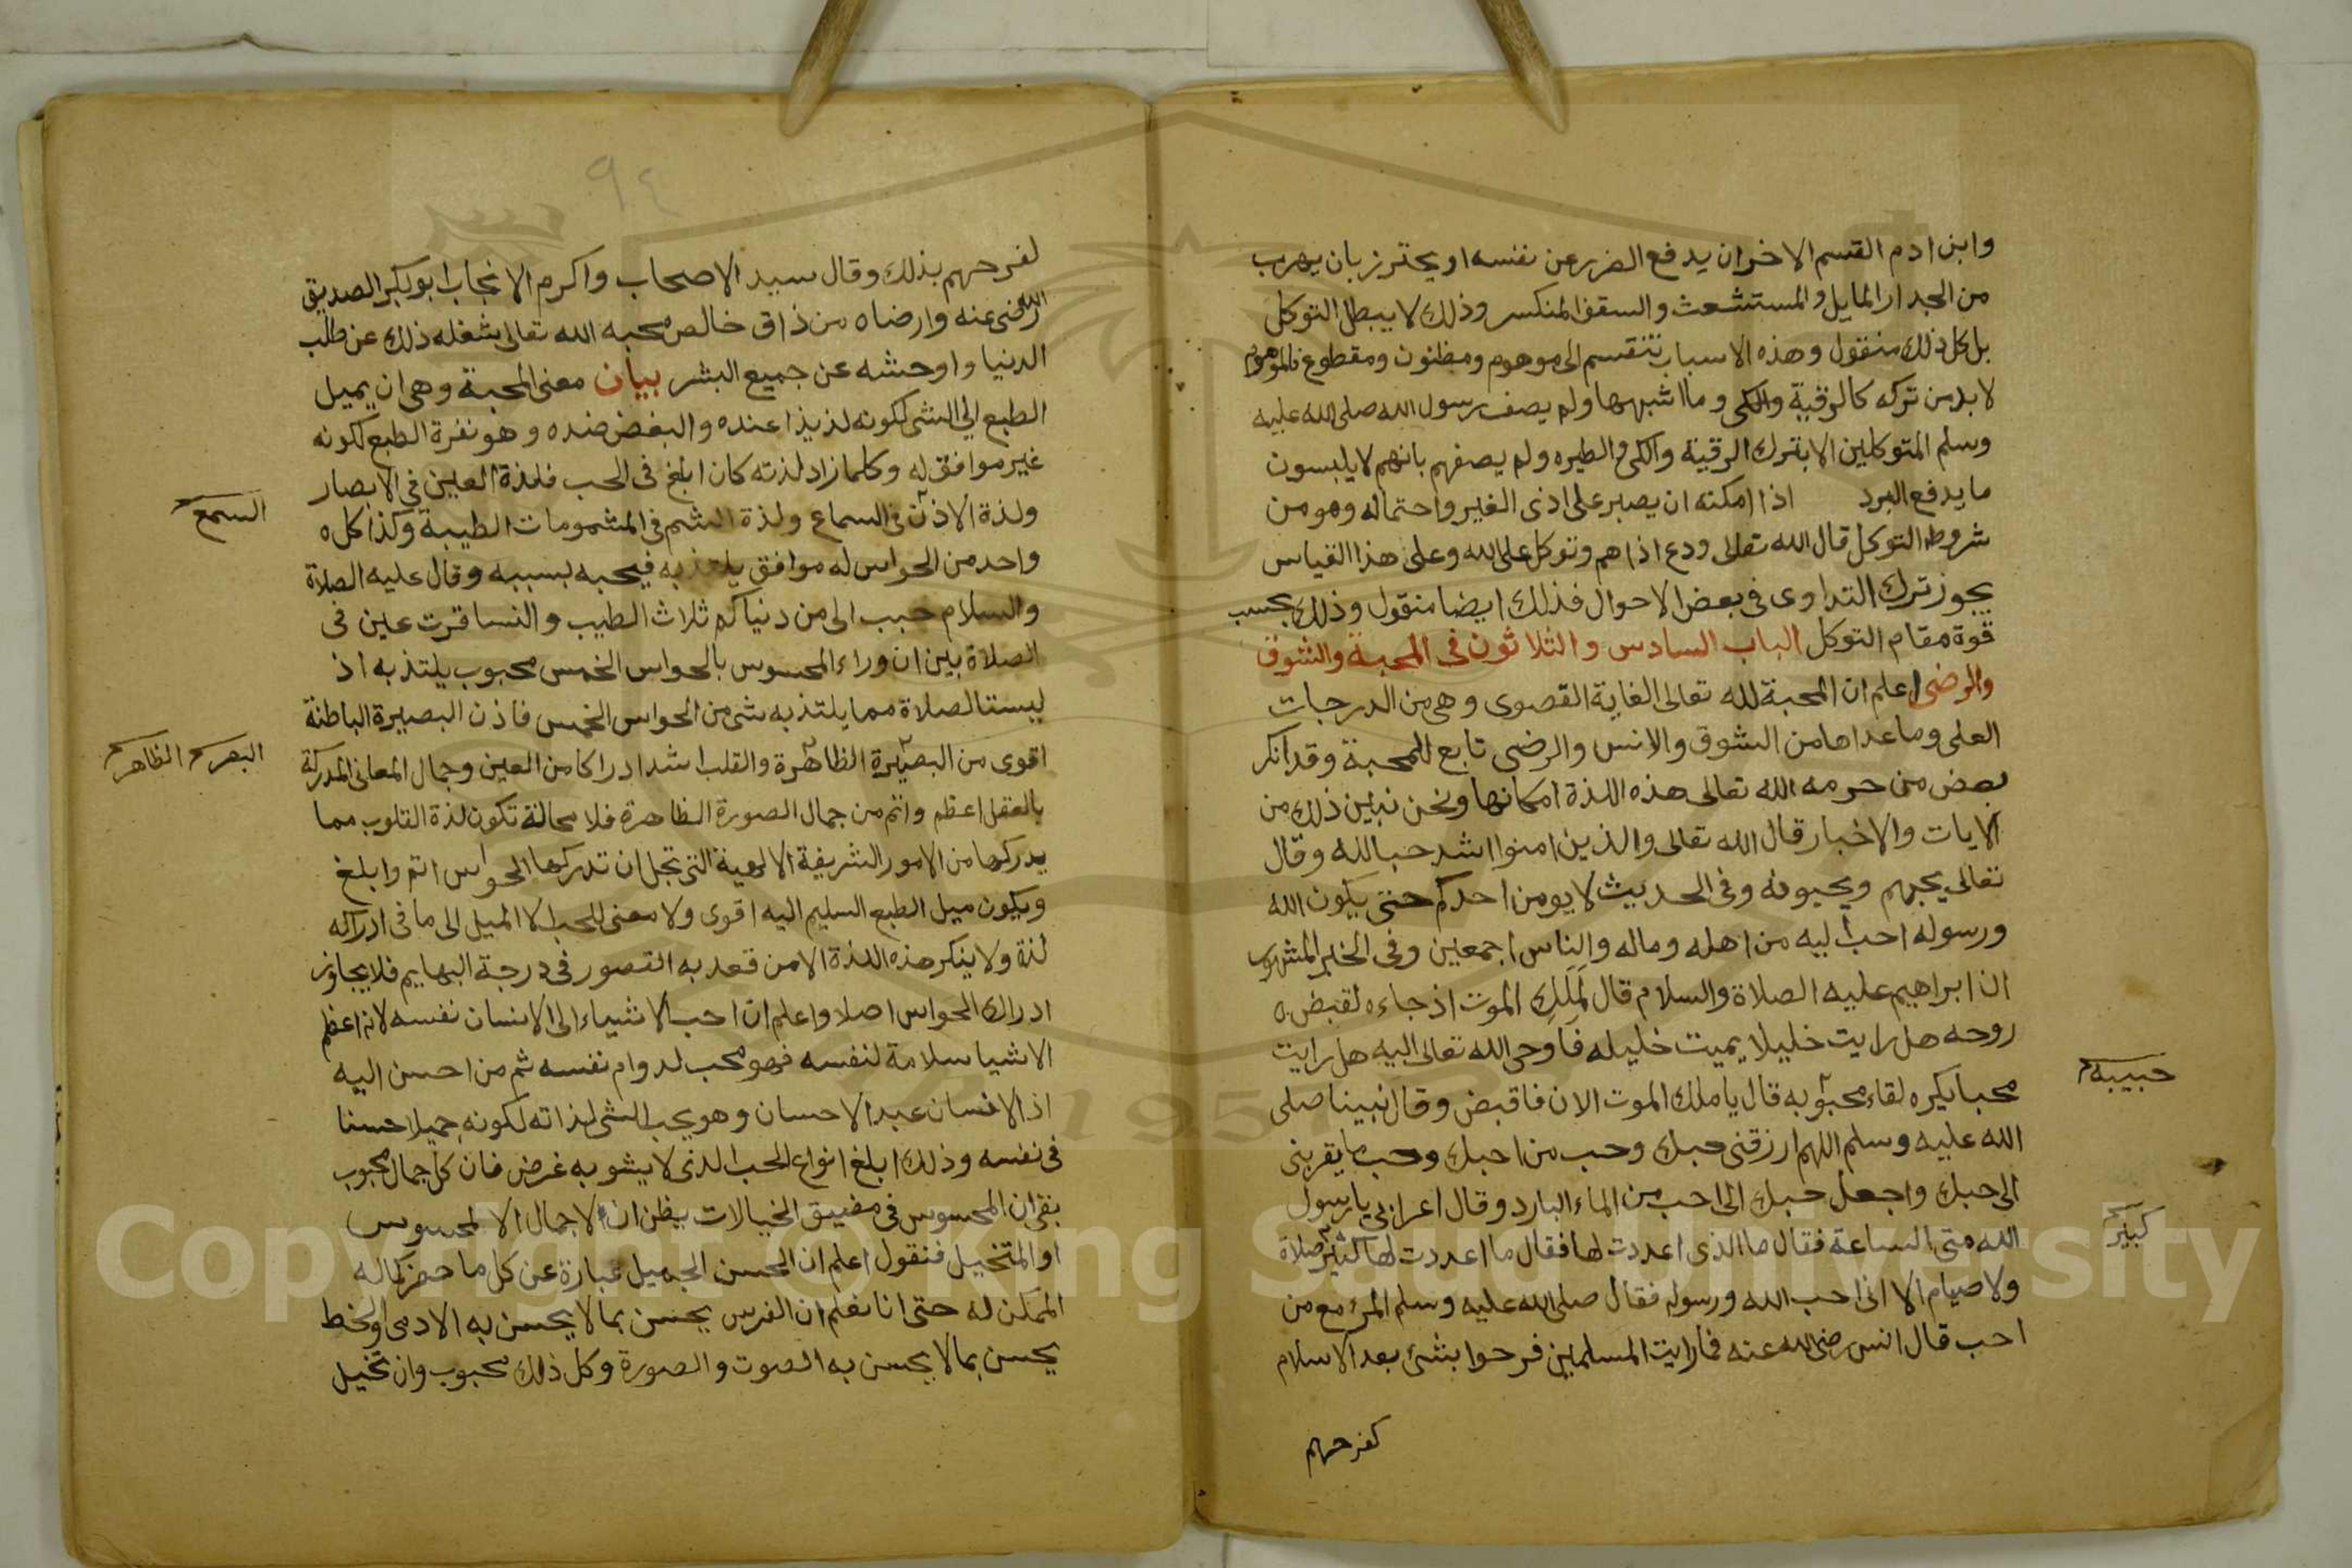 وابن ادم القسم الاخر ان يدفع الضرر عن نفسه او يحترز بان يهرب
من الجدار المايل والمستشعث والسقف المنكسر وذلك لا يبطل التوكل
بل كل ذلك منقول وهذه الاسباب تنقسم الى موهوم ومظنون ومقطوع فالموهوم
لا بد من تركه كالرقية والكى وما اشبهها ولم يصف رسول الله صلى الله عليه
وسلم المتوكلين الا بترك الرقية والكى والطيره ولم يصفهم بانهم لا يلبسون
ما يدفع البرد اذا امكنه ان يصبر على اذى الغير واحتماله وهو من
شروط التوكل قال الله تعالى ودع اذاهم وتوكل على الله وعلى هذا القياس
يجوز ترك التداوى فى بعض الاحوال فذلك ايضا منقول وذلك بحسب
قوة مقام التوكل الباب السادس والثلاثون فى المحبة والشوق
والرضى اعلم ان المحبة لله تعالى الغاية القصوى وهى من الدرجات
العلى وما عداها من الشوق والانس والرضى تابع للمحبة وقد انكر
بعض من حرمه الله تعالى هذه اللذة امكانها ونحن نبين ذلك من
الايات والاخبار قال الله تعالى والذين امنوا اشد حبا لله وقال
تعالى يحبهم ويحبونه وفى الحديث لا يومن احدكم حتى يكون الله
ورسوله احب اليه من اهله وماله والناس اجمعين وفى الخبر المشهور
ان ابراهيم عليه الصلاة والسلام قال لملك الموت اذ جاءه لقبض
روحه هل رايت خليلا يميت خليله فاوحى الله تعالى اليه هل رايت
محبا يكره لقاء محبوبه قال يا ملك الموت الان فاقبض وقال نبينا صلى
حبيبه
الله عليه وسلم اللهم ارزقنى حبك وحب من احبك وحب ما يقربنى
الى حبك واجعل حبك الى احب من الماء البارد وقال اعرابي يا رسول
الله متى الساعة فقال ما الذى اعددت لها فقال ما اعددت لها كثير صلاة
كبير
ولا صيام الا انى احب الله ورسوله فقال صلى الله عليه وسلم المرء مع من
احب قال انس رضى الله عنه فما رايت المسلمين فرحوا بشئ بعد الاسلام
كفرحهم
٩٤
لفرحهم بذلك وقال سيد الاصحاب واكرم الانجاب ابو بكر الصديق
رضى الله عنه وارضاه من ذاق خالص محبه الله تعالى شغله ذلك عن طلب
الدنيا واوحشه عن جميع البشر بيان معنى المحبة وهى ان يميل
الطبع الى الشى لكونه لذيذا عنده والبغض ضده وهو نفرة الطبع لكونه
غير موافق له وكلما زاد لذته كان ابلغ فى الحب فلذة العين فى الابصار
ولذة الاذن فى السماع ولذة الشم فى المشمومات الطيبة وكذا كل
السمع
واحد من الحواس له موافق يلتذ به فيحبه بسببه وقال عليه الصلاة
والسلام حبب الى من دنياكم ثلاث الطيب والنسا قرت عين فى
الصلاة بين ان وراء المحسوس بالحواس الخمس محبوب يلتذ به اذ
ليست الصلاة مما يلتذ به شى من الحواس الخمس فاذن البصيرة الباطنة
اقوى من البصيرة الظاهرة والقلب اشد ادراكا من العين وجمال المعانى المدركة
البصر الظاهر
بالعقل اعظم واتم من جمال الصورة الظاهرة فلا محالة تكون لذة القلوب مما
يدركها من الامور الشريفة الالهية التى تجل ان تدركها الحواس اتم وابلغ
ويكون ميل الطبع السليم اليه اقوى ولا معنى للحب الا الميل الى ما فى ادراكه
لذة ولا ينكر هذه اللذة الا من قعد به القصور فى درجة البهايم فلا يجاوز
ادراك الحواس اصلا واعلم ان احب الاشياء الى الانسان نفسه لانه اعظم
الاشيا سلامة لنفسه فهو محب لدوام نفسه ثم من احسن اليه
اذ الانسان عبد الاحسان وهو يحب الشى لذاته لكونه جميلا حسنا
فى نفسه وذلك ابلغ انواع الحب الذى لا يشوبه غرض فان كل جمال محبوب
بقى ان المحسوس فى مضيق الخيالات يظن ان لا جمال الا لمحسوس
او المتخيل فنقول اعلم ان الحسن الجميل عبارة عن كل ما حضر كماله
الممكن له حتى انا نعلم ان الفرس يحسن بما لا يحسن به الادمى والخط
يحسن بما لا يحسن به الصوت والصورة وكل ذلك محبوب وان تخيل